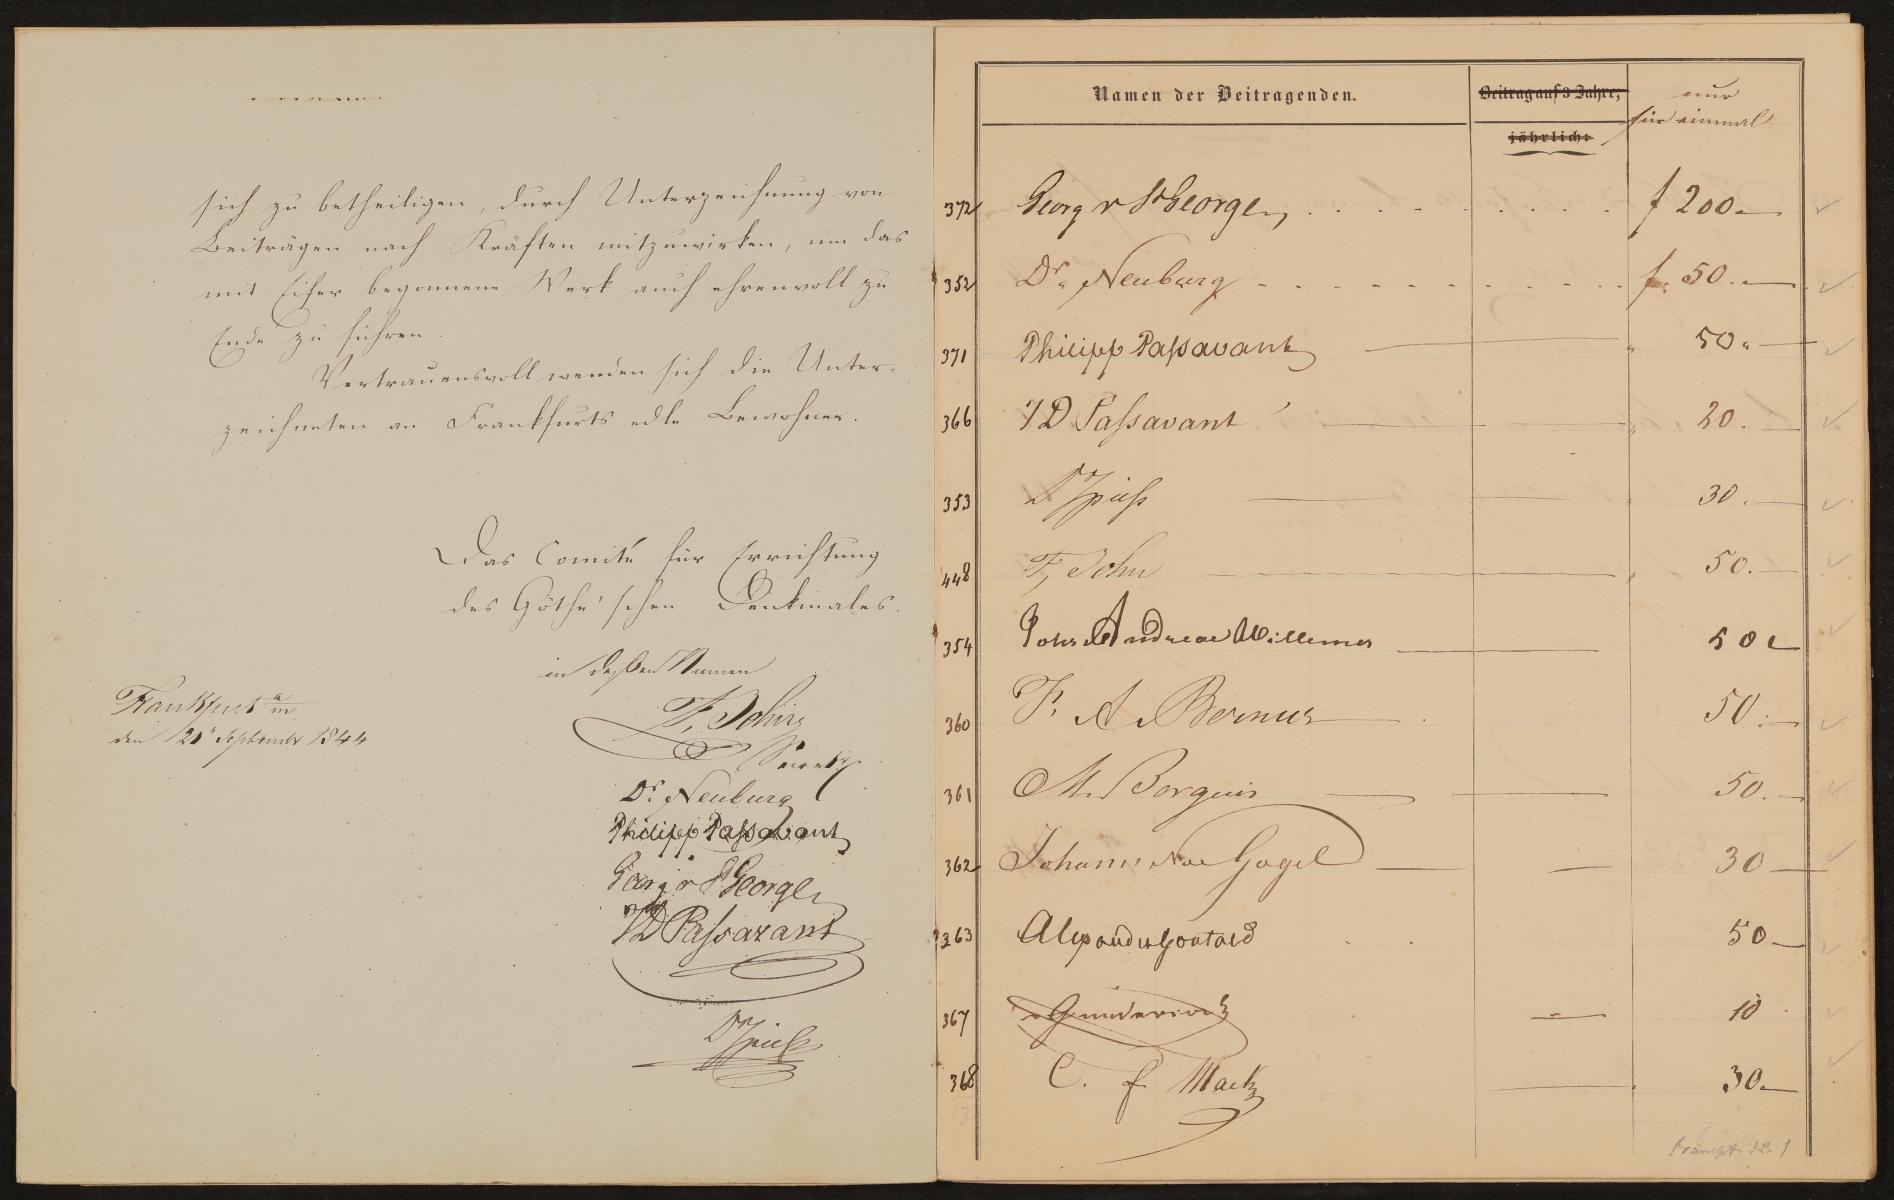 sich zu betheiligen, durch Unterzeichnung von
Beiträgen nach Kräften mitzuwirken, um das
mit Eifer begonnene Werk auch ehrenvoll zu
Ende zu führen.
Vertrauensvoll wenden sich die Unter-
zeichneten an Frankfurts edle Bewohner.
Das Comité für Errichtung
des Göthe'schen Denkmales.
in deßen Namen
F. John
Secret
Frankfurt a/m
den 20 September 1844
Dr. Neuburg
Philipp Paſsavant
Georg v St George
J D Paſsavant
Dr Spieſs
Namen der Beitragenden.
Beitrag auf 3 Jahre,
jährlich:
nur
für einmal
372 Georg v St George f 200.—
352 Dr. Neuburg f. 50.—
371 Philipp Paſsavant " 50.—
366 J D Paſsavant " 20.—
353 Dr Spieſs 30.—
448 F. John 50.—
354 Joh Andreae Willemer 50
360 F. A Bernus 50.—
361 M. Borgnis 50.—
362 Johann Noe Gogel 30 —
363 Alexander Gontard 50 —
367 v Günderrode 10
368 C. f. Mack 30.—